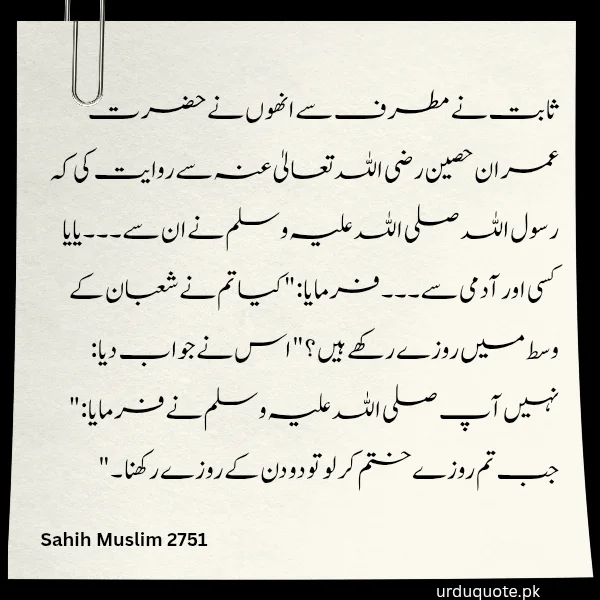 ثابت نے مطرف سے انھوں نے حضرت
عمران حصین رضی اللہ تعالیٰ عنہ سے روایت کی کہ
رسول اللہ صلی اللہ علیہ وسلم نے ان سے۔۔۔یایا
کسی اور آدمی سے۔۔۔فرمایا:"کیا تم نے شعبان کے
وسط میں روزے رکھے ہیں؟"اس نے جواب دیا:
نہیں آپ صلی اللہ علیہ وسلم نے فرمایا:"
جب تم روزے ختم کر لو تو دو دن کے روزے رکھنا۔"
Sahih Muslim 2751
urduquote.pk